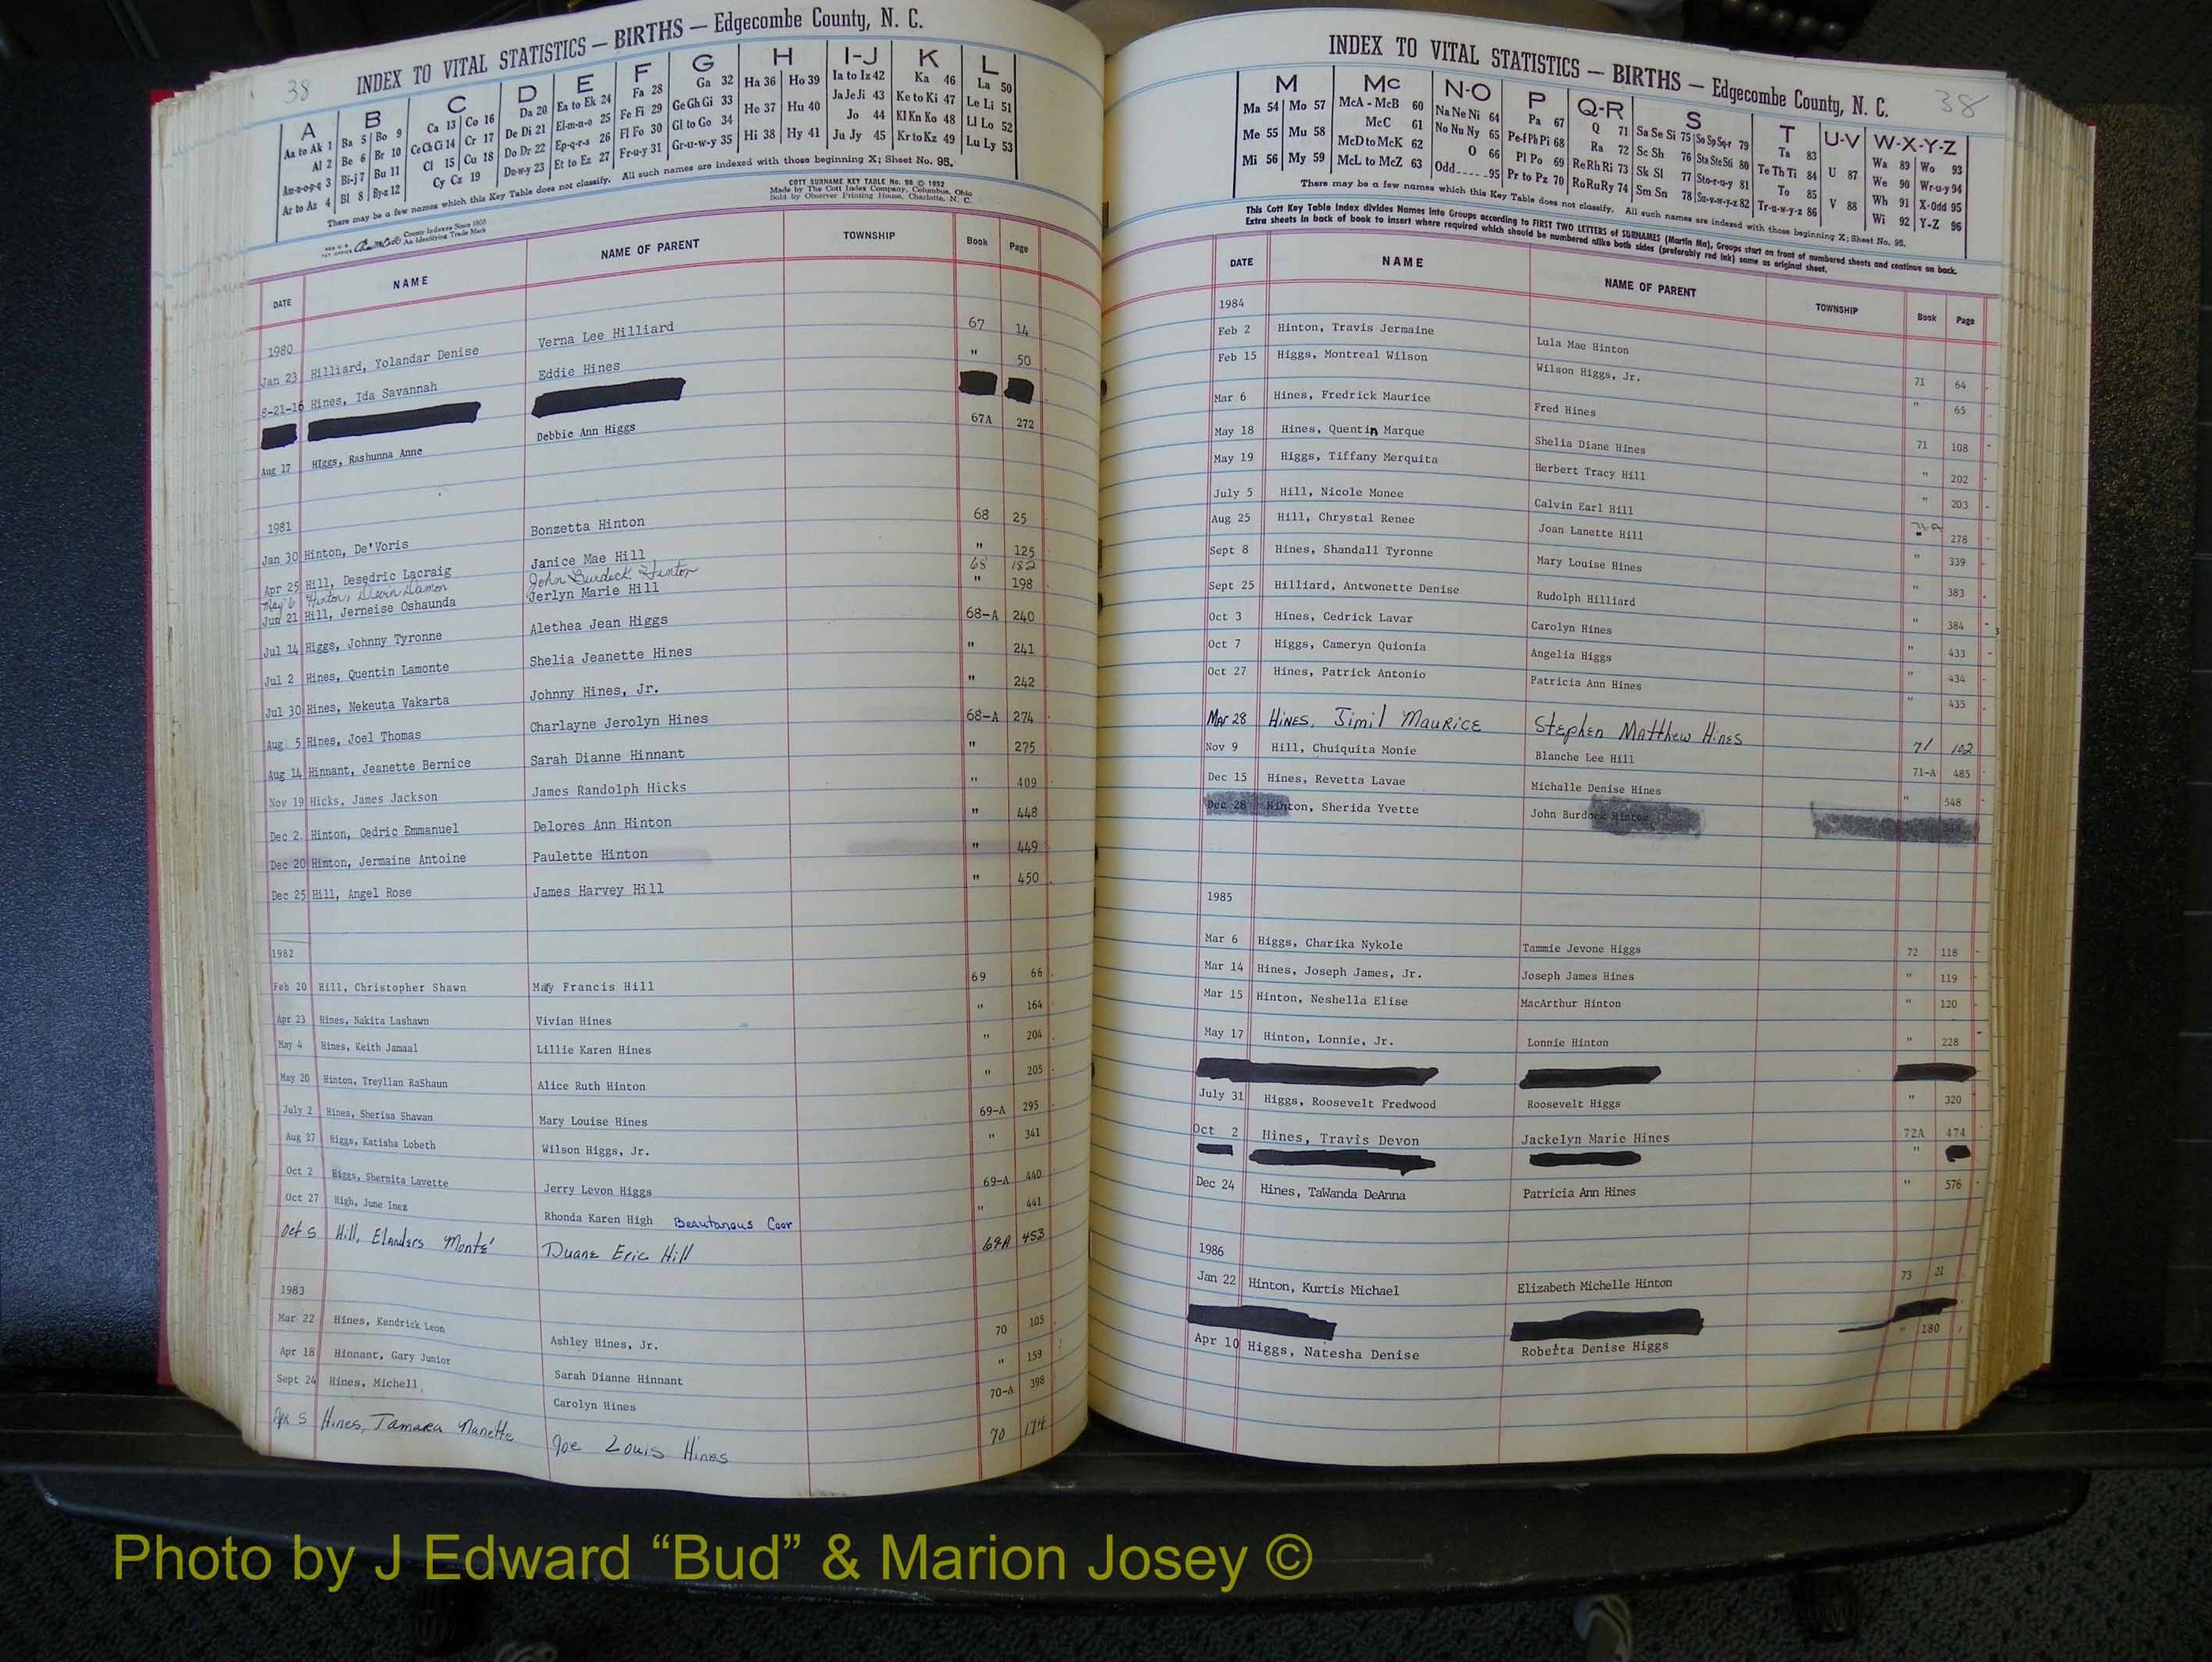 38
INDEX TO VITAL STATISTICS — BIRTHS — Edgecombe County, N. C.
A B C D E F G H I-J K L
Aa to Ak 1 Ba 5 Bo 9 Ca 13 Co 16 Da 20 Ea to Ek 24 Fa 28 Ga 32 Ha 36 Ho 39 Ia to Iz 42 Ka 46 La 50
Al 2 Be 6 Br 10 Ce Ch Ci 14 Cr 17 De Di 21 El-m-n-o 25 Fe Fi 29 Ge Gh Gi 33 He 37 Hu 40 Ja Je Ji 43 Ke to Ki 47 Le Li 51
Am-n-o-p-q 3 Bi-j 7 Bu 11 Cl 15 Cu 18 Do Dr 22 Ep-q-r-s 26 Fl Fo 30 Gl to Go 34 Hi 38 Hy 41 Jo 44 Kl Kn Ko 48 Ll Lo 52
Ar to Az 4 Bl 8 By-z 12 Cy Cz 19 Du-w-y 23 Et to Ez 27 Fr-u-y 31 Gr-u-w-y 35 Ju Jy 45 Kr to Kz 49 Lu Ly 53
There may be a few names which this Key Table does not classify. All such names are indexed with those beginning X; Sheet No. 95.
County Indexes Since 1888
An Identifying Trade Mark
COTT SURNAME KEY TABLE No. 98 © 1932
Made by The Cott Index Company, Columbus, Ohio
Sold by Observer Printing House, Charlotte, N. C.
DATE NAME NAME OF PARENT TOWNSHIP Book Page
1980
Jan 23 Hilliard, Yolandar Denise Verna Lee Hilliard 67 14
8-21-16 Hines, Ida Savannah Eddie Hines " 50
Aug 17 HIggs, Rashunna Anne Debbie Ann Higgs 67A 272
1981
Jan 30 Hinton, De'Voris Bonzetta Hinton 68 25
Apr 25 Hill, Desedric Lacraig Janice Mae Hill " 125
May 6 Hinton, Devin Damon John Burdock Hinton 68 152
Jun 21 Hill, Jerneise Oshaunda Jerlyn Marie Hill " 198
Jul 14 Higgs, Johnny Tyronne Alethea Jean Higgs 68-A 240
Jul 2 Hines, Quentin Lamonte Shelia Jeanette Hines " 241
Jul 30 Hines, Nekeuta Vakarta Johnny Hines, Jr. " 242
Aug 5 Hines, Joel Thomas Charlayne Jerolyn Hines 68-A 274
Aug 14 Hinnant, Jeanette Bernice Sarah Dianne Hinnant " 275
Nov 19 Hicks, James Jackson James Randolph Hicks " 409
Dec 2 Hinton, Cedric Emmanuel Delores Ann Hinton " 448
Dec 20 Hinton, Jermaine Antoine Paulette Hinton " 449
Dec 25 Hill, Angel Rose James Harvey Hill " 450
1982
Feb 20 Hill, Christopher Shawn Mary Francis Hill 69 66
Apr 23 Hines, Nakita Lashawn Vivian Hines " 164
May 4 Hines, Keith Jamaal Lillie Karen Hines " 204
May 20 Hinton, Treyllan RaShaun Alice Ruth Hinton " 205
July 2 Hines, Sherisa Shawan Mary Louise Hines 69-A 295
Aug 27 Higgs, Katisha Lobeth Wilson Higgs, Jr. " 341
Oct 2 Higgs, Shernita Lavette Jerry Levon Higgs 69-A 440
Oct 27 High, June Inez Rhonda Karen High " 441
Oct 5 Hill, Elanders Monte' Duane Eric Hill 69A 453
1983
Mar 22 Hines, Kendrick Leon Ashley Hines, Jr. 70 105
Apr 18 Hinnant, Gary Junior Sarah Dianne Hinnant " 159
Sept 24 Hines, Michell Carolyn Hines 70-A 398
Apr 5 Hines, Tamara Nanette Joe Louis Hines 70 174
INDEX TO VITAL STATISTICS — BIRTHS — Edgecombe County, N. C. 38
M Mc N-O P Q-R S T U-V W-X-Y-Z
Ma 54 Mo 57 McA - McB 60 Na Ne Ni 64 Pa 67 Q 71 Sa Se Si 75 So Sp Sq-r 79 Ta 83 U 87 Wa 89 Wo 93
Me 55 Mu 58 McC 61 No Nu Ny 65 Pe-f Ph Pi 68 Ra 72 Sc Sh 76 Sta Ste Sti 80 Te Th Ti 84 We 90 Wr-u-y 94
Mi 56 My 59 McD to McK 62 O 66 Pl Po 69 Re Rh Ri 73 Sk Sl 77 Sto-r-u-y 81 To 85 V 88 Wh 91 X-Odd 95
McL to McZ 63 Odd 95 Pr to Pz 70 Ro Ru Ry 74 Sm Sn 78 Su-v-w-y-z 82 Tr-u-w-y-z 86 Wi 92 Y-Z 96
There may be a few names which this Key Table does not classify. All such names are indexed with those beginning X; Sheet No. 95.
This Cott Key Table Index divides Names into Groups according to FIRST TWO LETTERS of SURNAMES (Martin Ma), Groups start on front of numbered sheets and continue on back.
Extra sheets in back of book to insert where required which should be numbered alike both sides (preferably red ink) same as original sheet.
DATE NAME NAME OF PARENT TOWNSHIP Book Page
1984
Feb 2 Hinton, Travis Jermaine Lula Mae Hinton 71 64
Feb 15 Higgs, Montreal Wilson Wilson Higgs, Jr. " 65
Mar 6 Hines, Fredrick Maurice Fred Hines 71 108
May 18 Hines, Quentin Marque Shelia Diane Hines " 202
May 19 Higgs, Tiffany Merquita Herbert Tracy Hill " 203
July 5 Hill, Nicole Monee Calvin Earl Hill 71-A 278
Aug 25 Hill, Chrystal Renee Joan Lanette Hill " 339
Sept 8 Hines, Shandall Tyronne Mary Louise Hines " 383
Sept 25 Hilliard, Antwonette Denise Rudolph Hilliard " 384
Oct 3 Hines, Cedrick Lavar Carolyn Hines " 433
Oct 7 Higgs, Cameryn Quionia Angelia Higgs " 434
Oct 27 Hines, Patrick Antonio Patricia Ann Hines " 435
Mar 28 Hines, Jimil Maurice Stephen Matthew Hines 71 102
Nov 9 Hill, Chuiquita Monie Blanche Lee Hill 71-A 485
Dec 15 Hines, Revetta Lavae Michalle Denise Hines " 548
Dec 28 Hinton, Sherida Yvette John Burdock Hinton
1985
Mar 6 Higgs, Charika Nykole Tammie Jevone Higgs 72 118
Mar 14 Hines, Joseph James, Jr. Joseph James Hines " 119
Mar 15 Hinton, Neshella Elise MacArthur Hinton " 120
May 17 Hinton, Lonnie, Jr. Lonnie Hinton " 228
July 31 Higgs, Roosevelt Fredwood Roosevelt Higgs " 320
Oct 2 Hines, Travis Devon Jackelyn Marie Hines 72A 474
"
Dec 24 Hines, TaWanda DeAnna Patricia Ann Hines " 576
1986
Jan 22 Hinton, Kurtis Michael Elizabeth Michelle Hinton 73 21
Apr 10 Higgs, Natesha Denise Roberta Denise Higgs " 180
Photo by J Edward “Bud” & Marion Josey ©